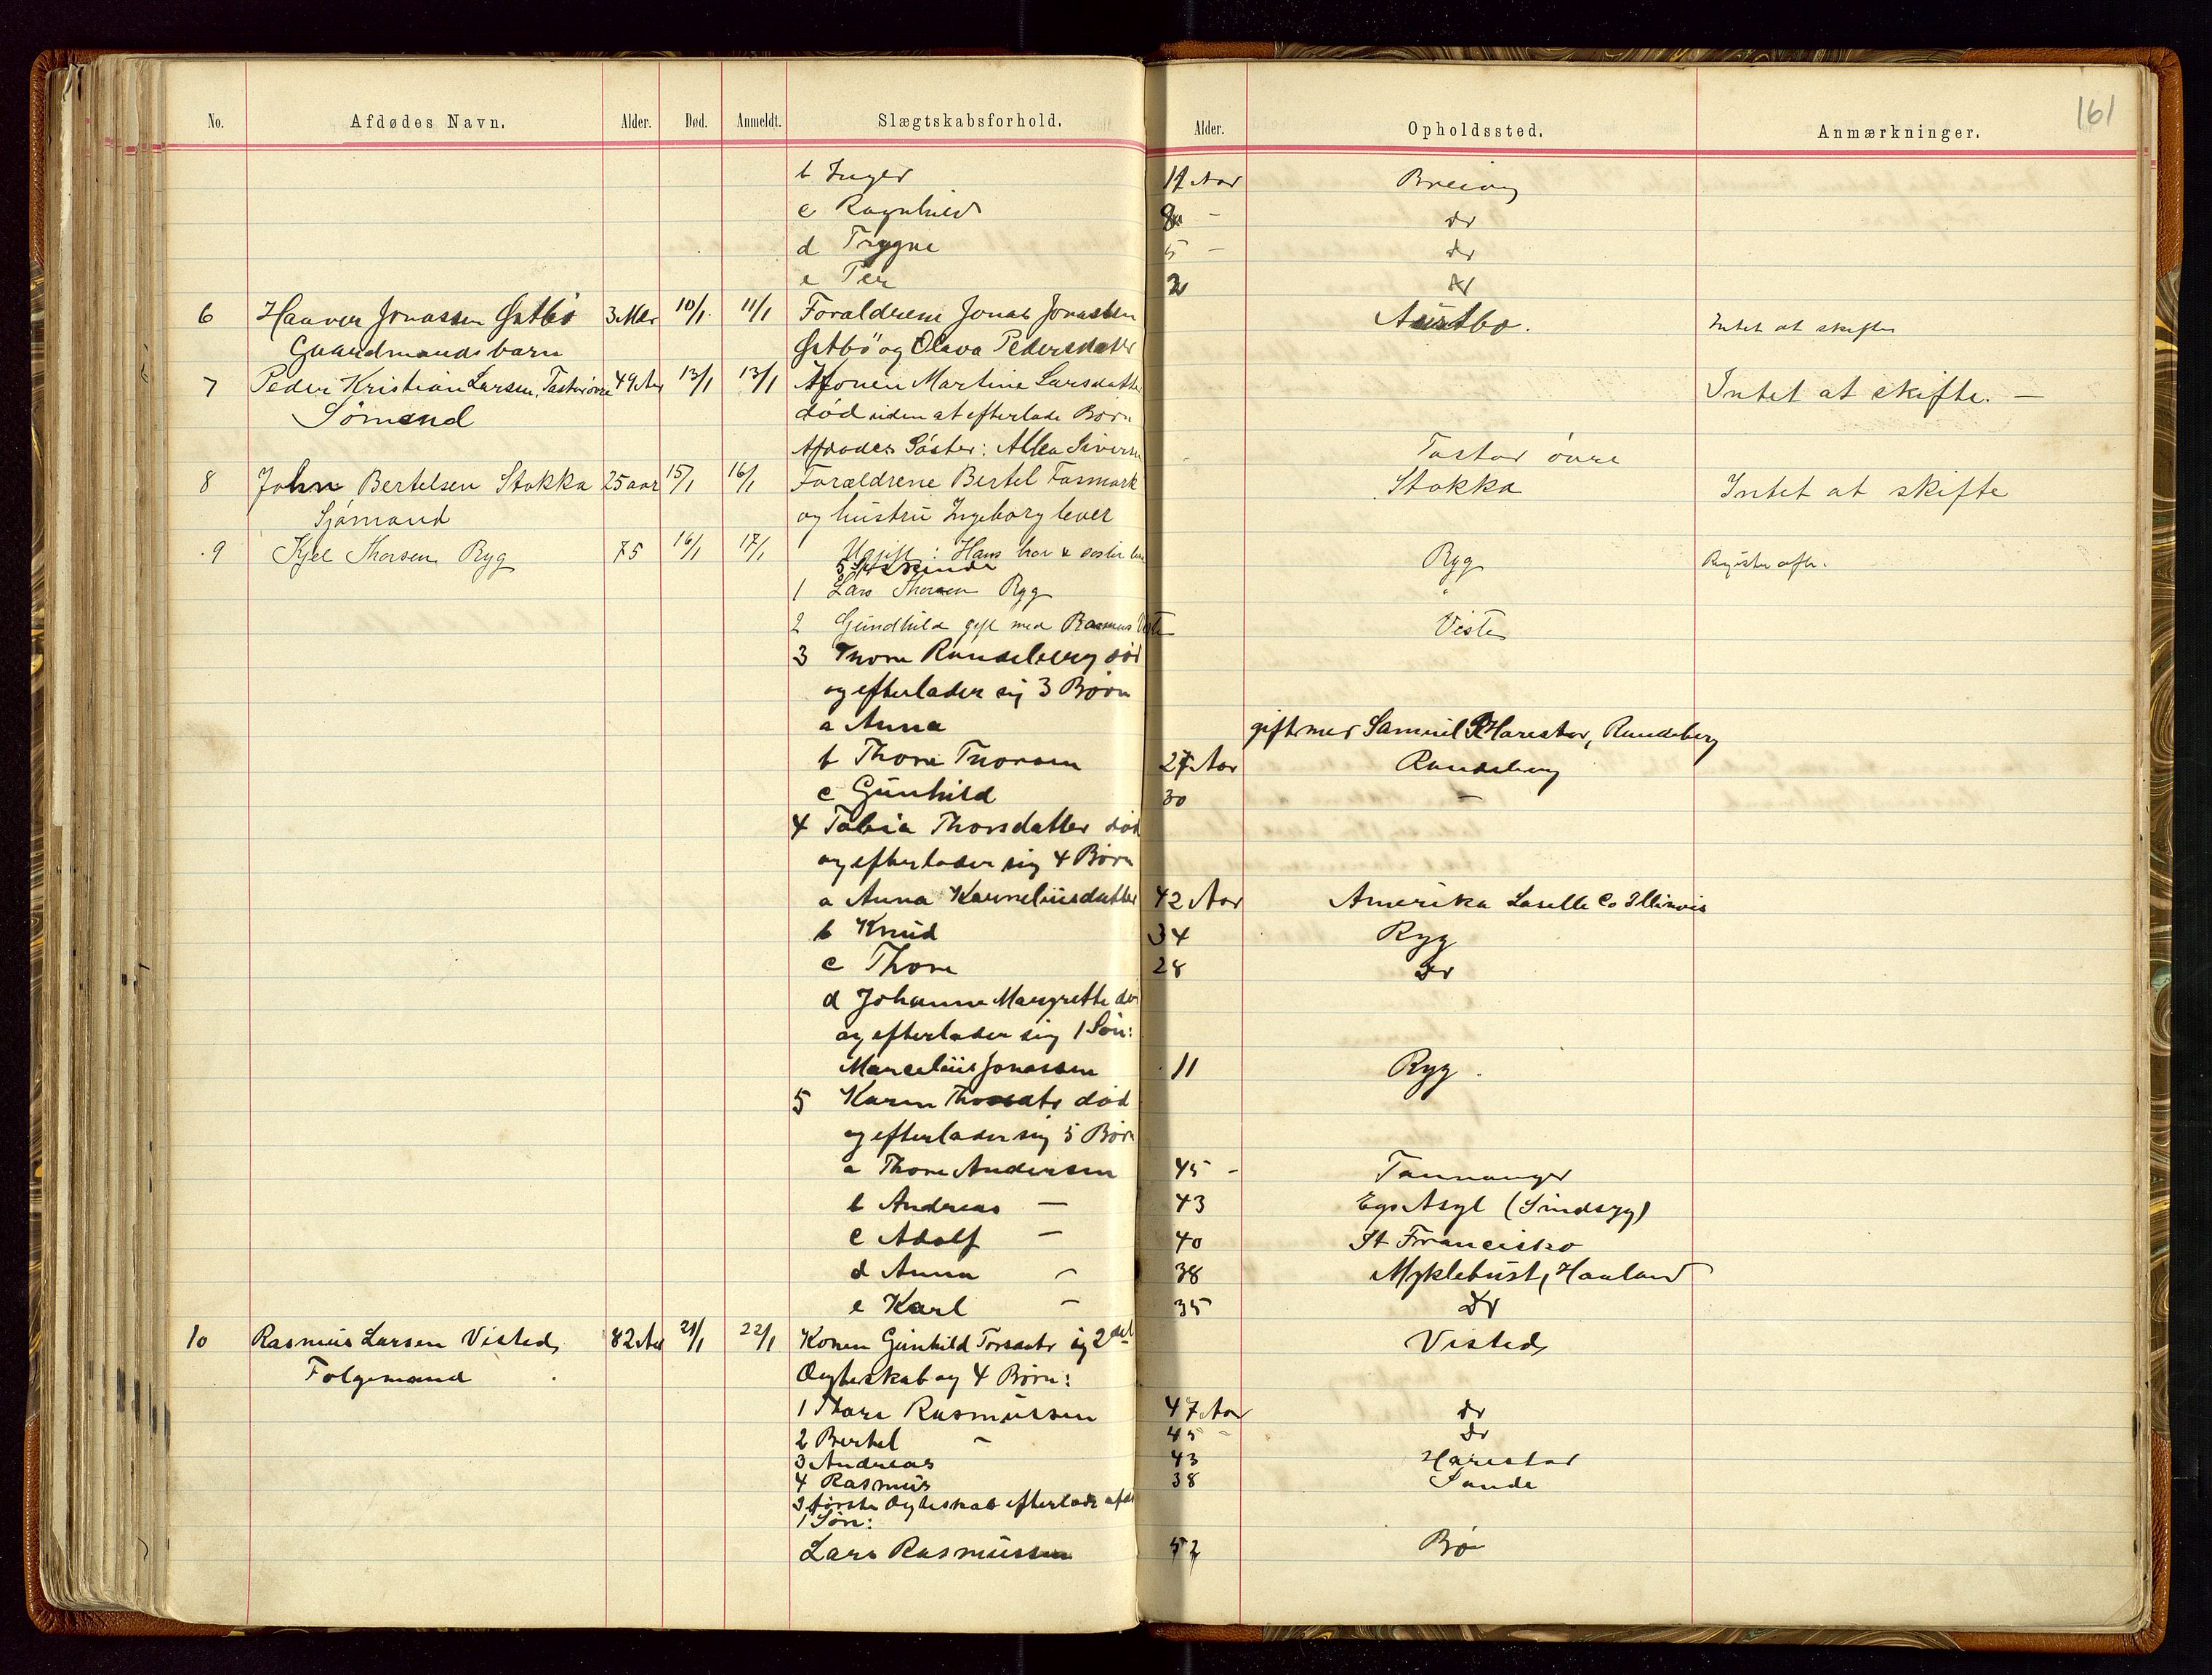 161
No. Afdødes Navn. Alder. Død. Anmeldt. Slægtskabsforhold. Alder. Opholdssted. Anmærkninger.
b Inger 11 Aar Breivig
c Ragnhild 8 - do
d Trygve 5 - do
e Per 2 do
6 Haaver Jonassen Østbö 3 Mdr 10/1 11/1 Foraldrene Jonas Jonassen Austbø. Intet at skifte
Gaardmandsbarn Østbö og Olava Pedersdatter
7 Peder Kristian Larsen, Tastaøvre 49 Aar 13/1 13/1 Konen Martine Larsdatter Intet at skifte. —
Sömand død uden at efterlade Børn
Afdødes Söster: Sivers Tastar övre
8 John Bertelsen Stokka 25 aar 15/1 16/1 Forældrene Bertel Fasmark Stokka Intet at skifte
Sjömand og hustru Ingeborg lever
9 Kjel Thorsen Ryg 75 16/1 17/1 Ugift: Hans Ryg
5 Söskende
1 Lars Thorsen Ryg "
2 Gundhild gift med Rasmus Viste Viste
3 Thore Randeberg död
og efterlader sig 3 Börn
a Anna gift med Samuel Harestad, Randeberg
b Thore Thorsen 27 Aar Randeberg
c Gunhild 30 —
4 Tabia Thorsdatter död
og efterlader sig 4 Børn
a Anna Korneliusdatter 42 Aar Amerika Laselle Co Illinois
b Knud 34 Ryg
c Thore 28 do
d Johanne Margrethe död
og efterlader sig 1 Sön:
Marcelius Jonassen 11 Ryg.
5 Karen Thorsdtr död
og efterlader sig 5 Børn
a Thore Andersen 45 - Tannanger
b Andreas — 43 Egs Asyl (Sindsyg)
c Adolf — 40 St Francisko
d Anna — 38 Myklebust, Haaland
e Karl — 35 do
10 Rasmus Larsen Visted, 82 Aar 21/1 22/1 Konen Gunhild Torsdatr ig 2det Visted,
Følgemand Ægteskab og 4 Børn:
1 Thore Rasmussen 47 Aar do
2 Bertel — 45 - do
3 Andreas 43 Harestad
4 Rasmus 38 Sande
I første Ægteskab efterlod afd
1 Søn:
Lars Rasmussen 52 Bø